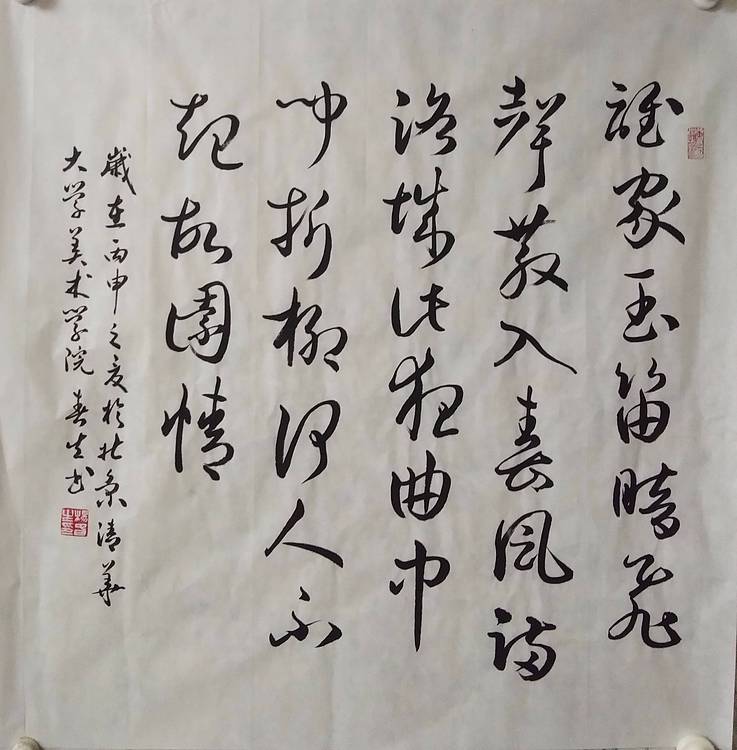 誰家玉笛暗飛
聲散入春風滿
洛城此夜曲中
聞折柳何人不
起故園情
歲在丙申之夏於北京清華
大学美术学院春生书